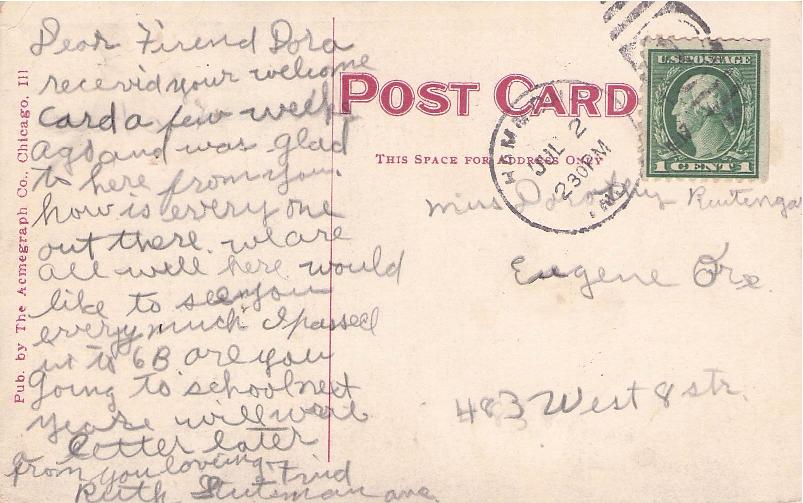 Dear Firend Dora
recervid your welcome
card a few weeks
ago and was glad
to here from you.
how is every one
out there. we are
all well here would
like to see you
every much I passed
in to 6B are you
going to school next
year will writ
a letter later
from you loveing Frind
Ruth Stutsman ave.
Pub. by The Acmegraph Co., Chicago, Ill
POST CARD
THIS SPACE FOR ADDRESS ONLY
HAMMOND
JUL 2
230PM
IND.
U.S. POSTAGE
1 CENT 1
Miss Dorothy Ruitenga
Eugene Ore.
483 West 8 str.